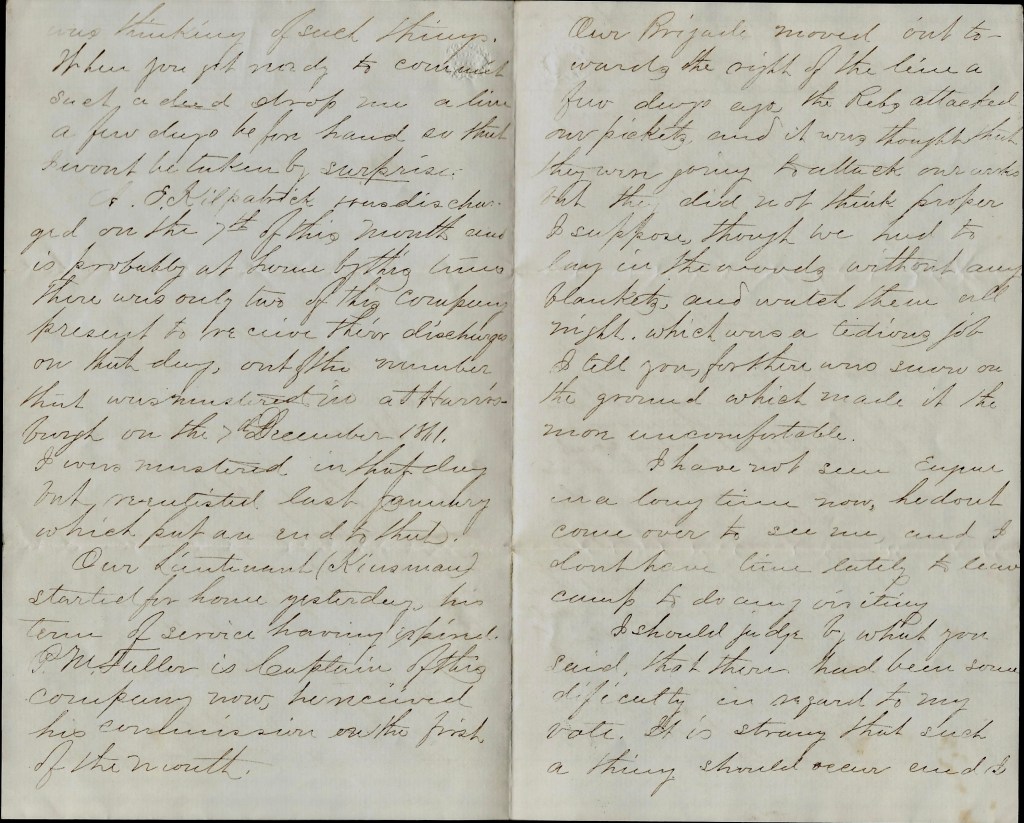 was thinking of such things.
When you get ready to commit
such a deed drop me a line
a few days before hand so that
I wont be taken by surprise.
E. Kilpatrick was dischar-
ged on the 7th of this month and
is probably at home by this time
there was only two of this company
present to receive their discharges
on that day, out of the number
that was mustered in at Harris-
burgh on the 7th December 1861.
I was mustered in that day
but reenlisted last January
which put an end to that.
Our Lieutenant (Kinsman)
started for home yesterday, his
term of service having expired.
P. M. Fuller is Captain of this
company now, he received
his commission on the first
of the month.
Our Brigade moved out to-
wards the right of the line a
few days ago, the Rebs attacked
our pickets, and it was thought that
they were going to attack our works
but they did not think proper
I suppose, though we had to
lay in the woods without any
blankets, and watch them all
night. which was a tedious job
I tell you, for there was snow on
the ground which made it the
more uncomfortable.
I have not seen
in a long time now, he dont
come over to see me, and I
dont have time lately to leave
camp to do any visiting
I should judge by what you
said, that there had been some
dificulty in regard to my
vote. It is strang that such
a thing should occur and I